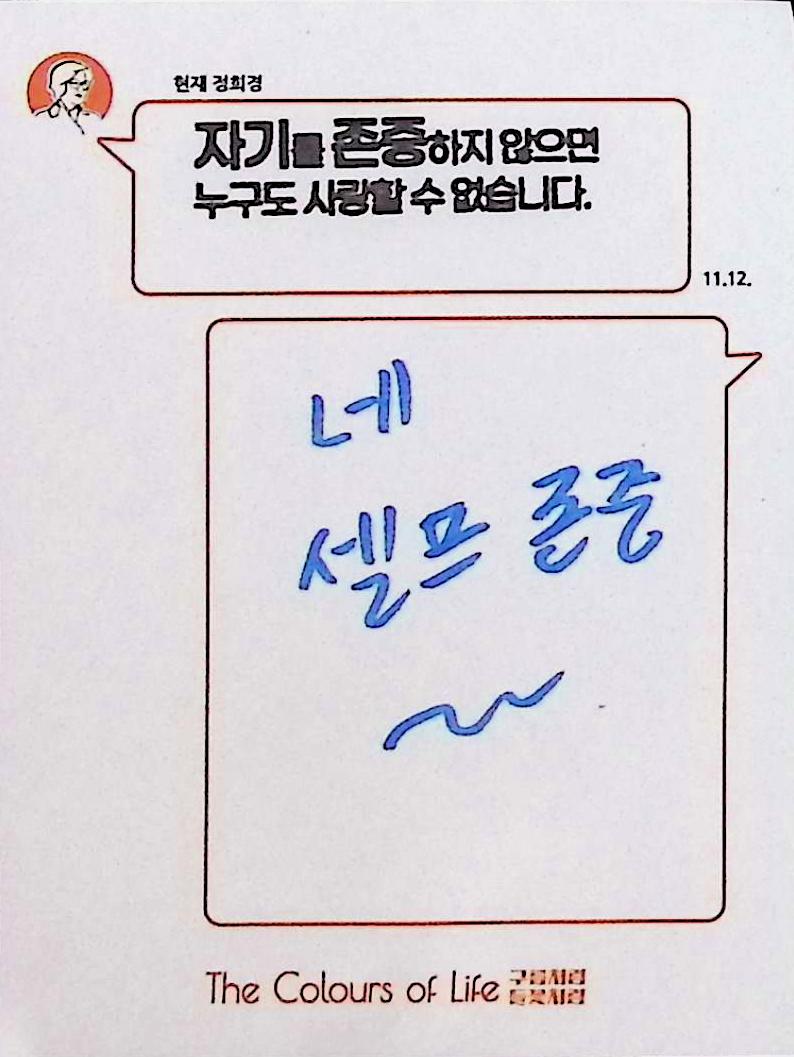 현재 정희경
자기를 존중하지 않으면
누구도 사랑할 수 없습니다.
11.12.
네
셀프 존중
~~
The Colours of Life 구름처럼
들꽃처럼